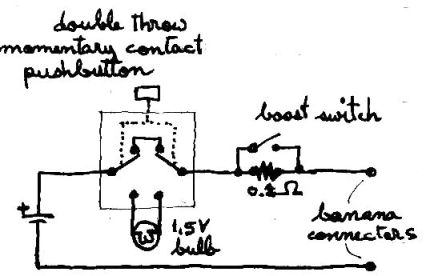 double throw
momentary contact
pushbutton
boost switch
0.2 Ω
+
1.5V
bulb
banana
connectors